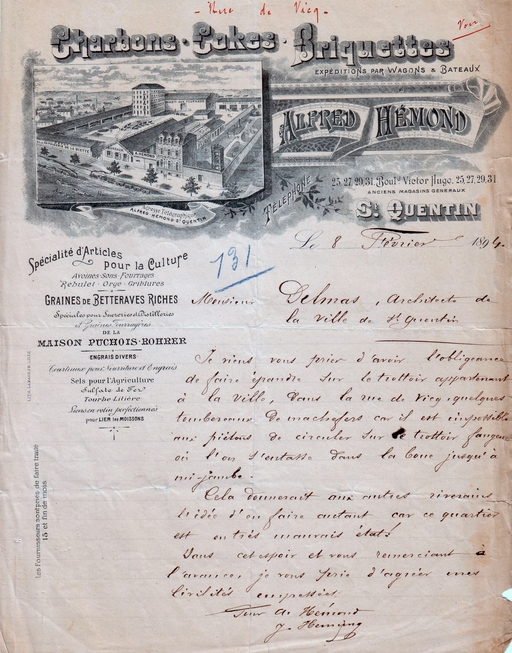 - Rue de Vicq -
Voir
Charbons - Cokes - Briquettes
EXPÉDITIONS PAR WAGONS & BATEAUX
ALFRED HÉMOND
25, 27, 29, 31, Boulᵈ Victor Hugo, 25, 27, 29, 31
ANCIENS MAGASINS GÉNÉRAUX
TÉLÉPHONE
Sᵗ QUENTIN
Adresse Télégraphique
ALFRED HÉMOND Sᵗ QUENTIN
Le 8 Février 1894.
131
Spécialité d'Articles
pour la Culture
Avoines-Sons-Fourrages
Rebulet-Orge-Criblures
GRAINES DE BETTERAVES RICHES
Spéciales pour Sucreries & Distilleries
et Graines Fourragères
DE LA
MAISON PUCHOIS-ROHRER
ENGRAIS DIVERS
Tourteaux pour Nourriture et Engrais
Sels pour l'Agriculture
Sulfate de Fer
Tourbe Litière
Liens en coton perfectionnés
pour LIER les MOISSONS
Les Fournisseurs sont priés de faire traite
15 et fin de mois
Monsieur Delmas, Architecte de
la ville de St Quentin
Je viens vous prier d'avoir l'obligeance
de faire épandre sur le trottoir appartenant
à la ville, Dans la rue de Vicq quelques
tombereaux De machefers car il est impossible
aux piétons de circuler sur le trottoir fangeux
où l'on s'entasse dans la boue jusqu'à
mi-jambe.
Cela donnerait aux autres riverains
l'idée d'en faire autant car ce quartier
est en très mauvais état!
Dans cet espoir et vous remerciant à
l'avance, je vous prie d'agréer mes
civilités empressées
Pour A. Hémond